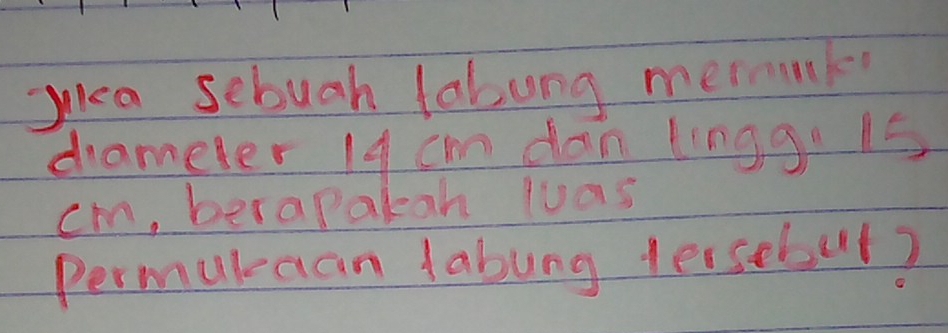 Jika sebuah tabung memiliki
diameter 14 cm dan tinggi 15
cm, berapakah luas
Permukaan tabung tersebut?